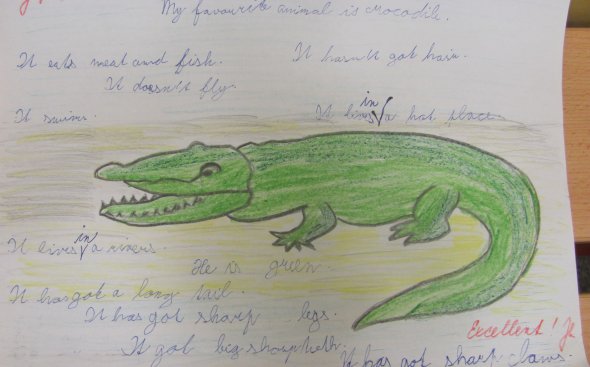 My favourite animal is crocodile.
It eats meat and fish. It hasn't got hair.
It doesn't fly.
It swims. It lives in a hot place.
It lives in a rivers.
He is green.
It has got a long tail.
It has got sharp legs.
Excellent!
It got big sharp teeth.
It has got sharp claws.